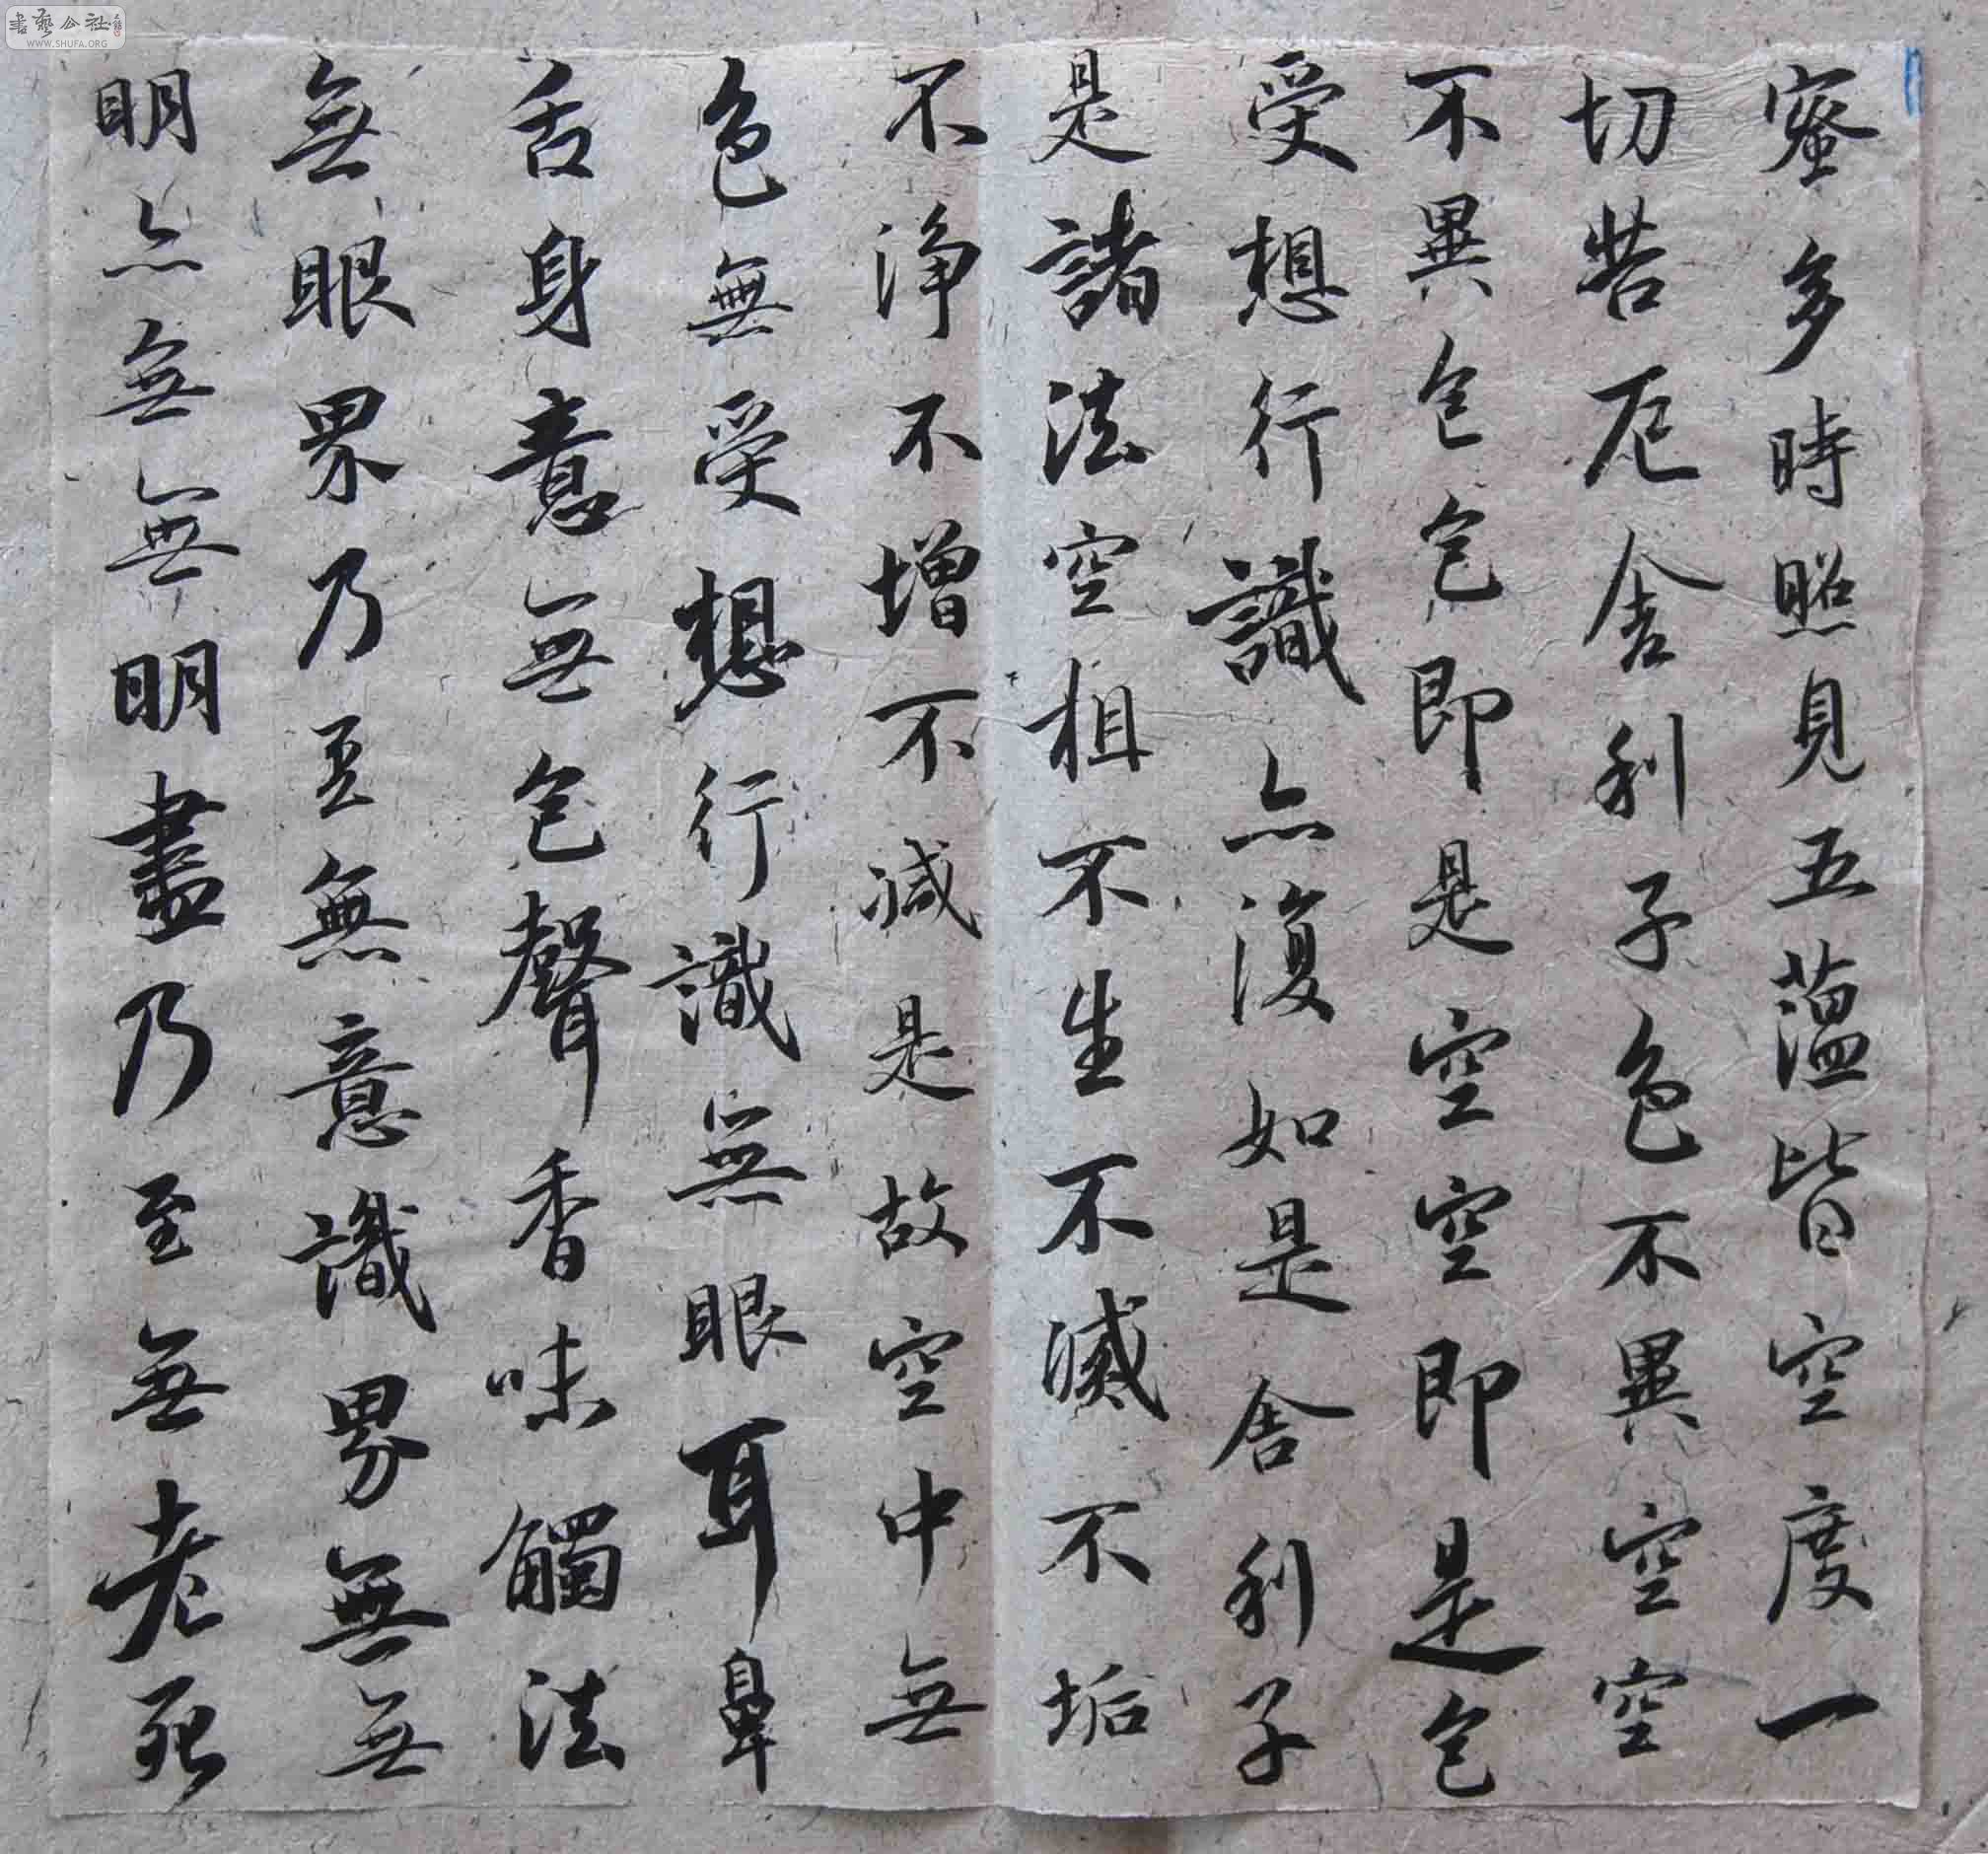 蜜多時照見五蘊皆空度一
切苦厄舍利子色不異空空
不異色色即是空空即是色
受想行識亦復如是舍利子
是諸法空相不生不滅不垢
不淨不增不減是故空中無
色無受想行識無眼耳鼻
舌身意無色聲香味觸法
無眼界乃至無意識界無無
明亦無無明盡乃至無老死
書藝公社
WWW.SHUFA.ORG